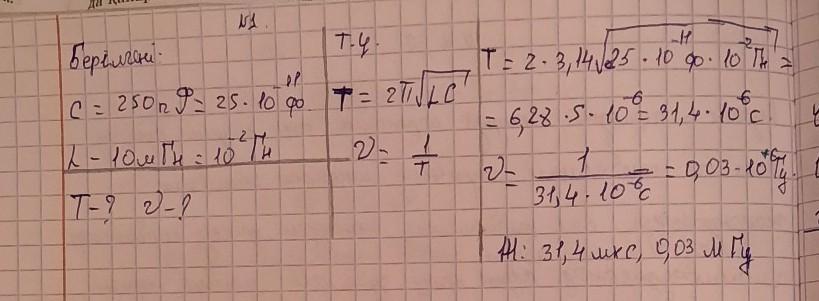 №1.
Берілгені:
C = 250пФ = 25·10⁻¹¹ Ф
L – 10мГн = 10⁻² Гн
T-? ν-?
T = 2π√LC
ν = 1/T
T = 2·3,14√25·10⁻¹¹Ф·10⁻²Гн =
= 6,28·5·10⁻⁶ = 31,4·10⁻⁶ с
ν = 1/31,4·10⁻⁶с = 0,03·10⁺⁶Гц.
Ж: 31,4 мкс, 0,03 МГц